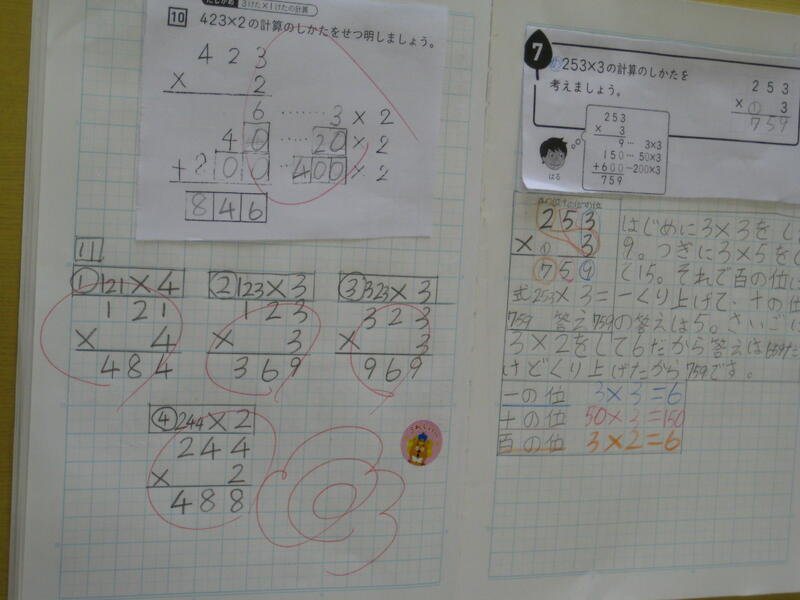 3けた×1けたの計算
10 423×2の計算のしかたをせつ明しましょう。
4 2 3
× 2
6 …… 3 × 2
4 0 …… 20 × 2
+ 8 0 0 … 400 × 2
8 4 6
11
① 121×4
1 2 1
× 4
4 8 4
② 123×3
1 2 3
× 3
3 6 9
③ 323×3
3 2 3
× 3
9 6 9
④ 244×2
2 4 4
× 2
4 8 8
7
253×3の計算のしかたを
考えましょう。
2 5 3
× ① 3
7 5 9
253
× 3
9… 3×3
150… 50×3
+600…200×3
759
はる
2 5 3
× ① 3
7 5 9
はじめに3×3をし
9。つぎに3×5をし
て15。それで百の位に
式253×3= 一くり上げて、十の位
759 答え759 の答えは5。さいごに
3×2をして6だから答えは
けどくり上げたから759です。
一の位 3×3=6
十の位 50×3=150
百の位 3×2=6